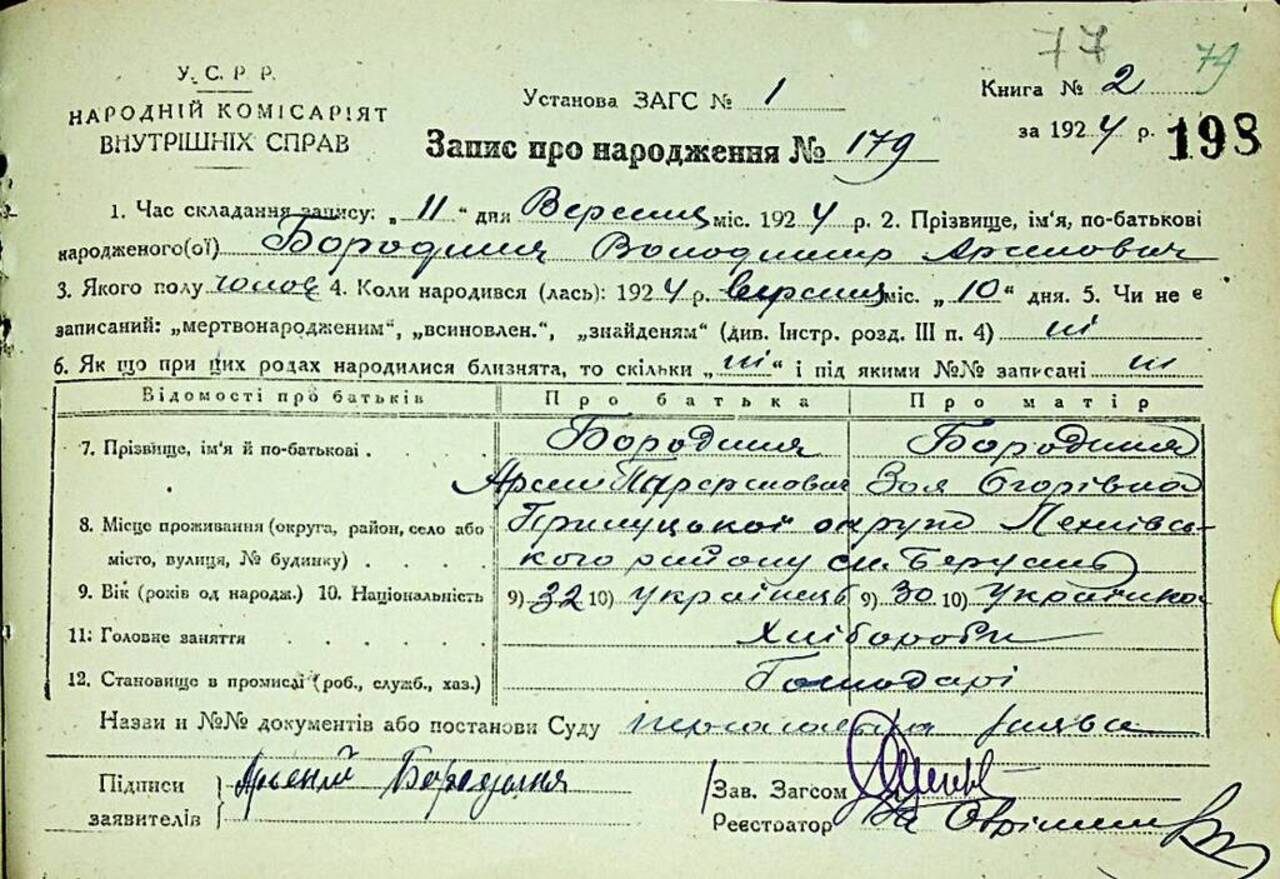 77 79
У. С. Р Р.
НАРОДНІЙ КОМІСАРІЯТ
ВНУТРІШНІХ СПРАВ
Установа ЗАГС № 1
Книга № 2
за 1924 р. 198
Запис про народження № 179
1. Час складання запису: „11“ дня Вересня міс. 1924 р. 2. Прізвище, ім'я, по-батькові
народженого(ої) Бородиня Володимир Арсенович
3. Якого полу чолов 4. Коли народився (лась): 1924 р. вересня міс. „10“ дня. 5. Чи не є
записаний: „мертвонародженим“, „всиновлен.“, „знайденям“ (див. Інстр. розд. III п. 4) ні
6. Як що при цих родах народилися близнята, то скільки „ні“ і під якими №№ записані ні
Відомості про батьків Про батька Про матір
7. Прізвище, ім'я й по-батькові . . . . Бородиня Бородиня
Арсен Зоя Єгорівна
8. Місце проживання (округа, район, село або Прилуцької округи
місто, вулиця, № будинку) . . . . кого району
9. Вік (років од народж.) 10. Національність 9) 32 10) Українець 9) 30 10) Українка
11. Головне заняття . . . . . Хлібороби
12. Становище в промислі (роб., служб., хаз.) Господарі
Назви и №№ документів або постанови Суду заява
Підписи Арсеній Бородиня
заявителів
Зав. Загсом
Реєстратор